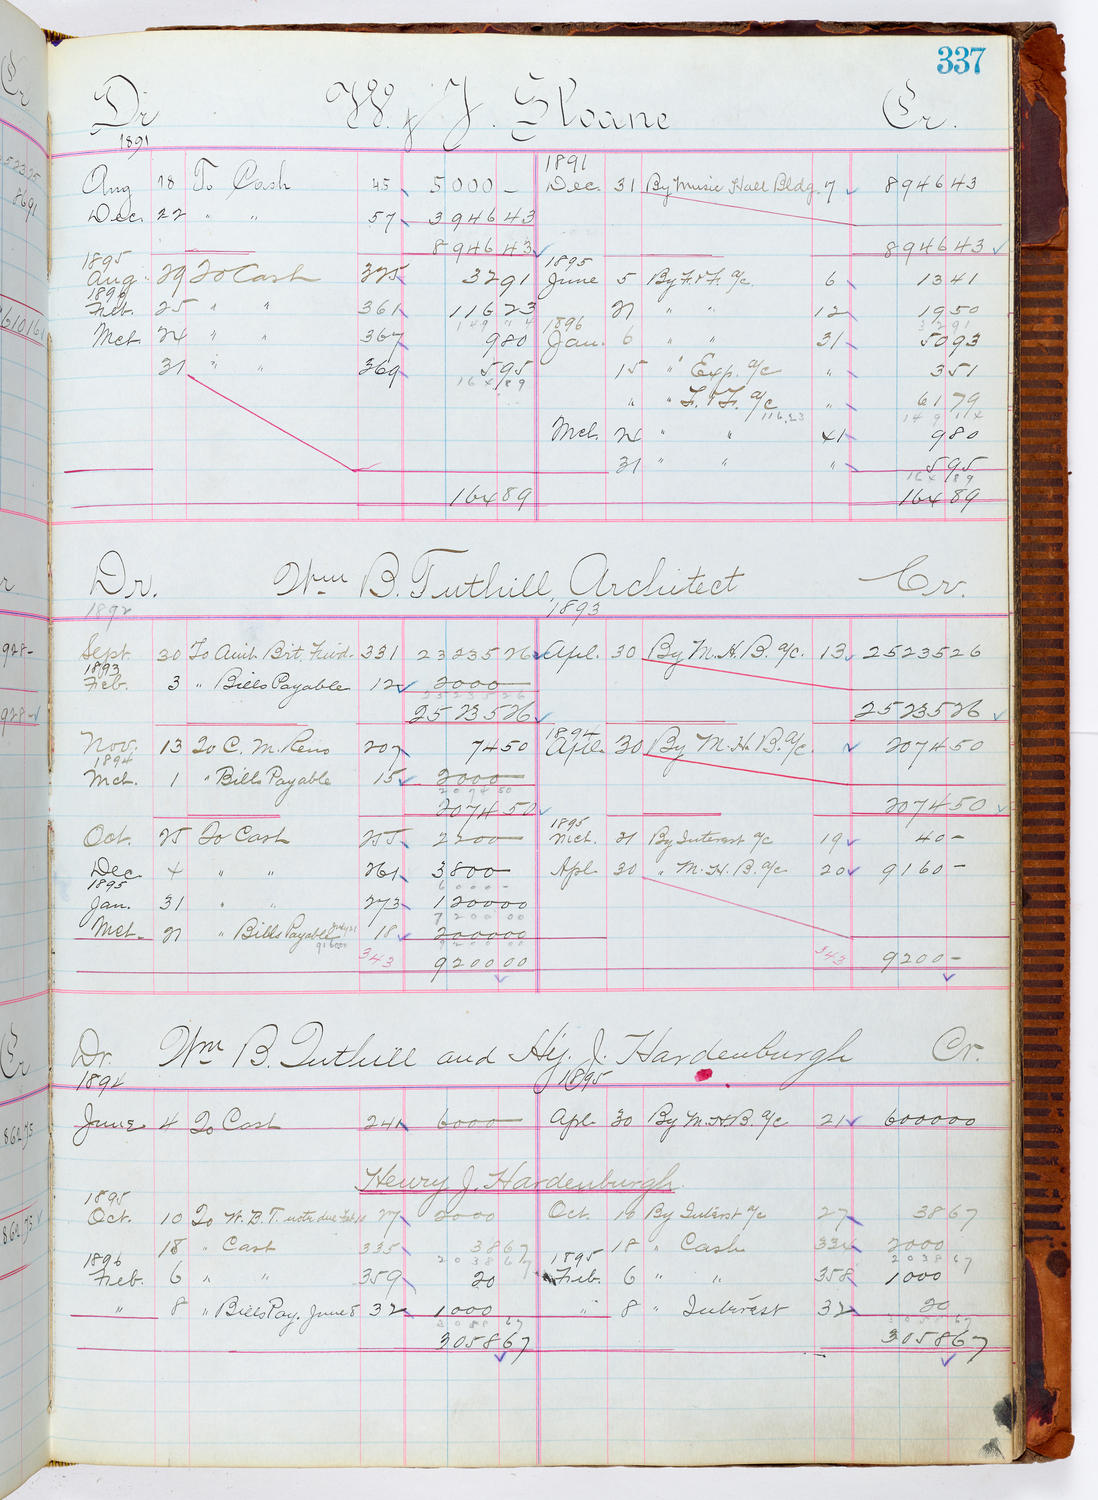 337
Dr W. & J. Sloane Cr.
1891 1891
Aug 18 To Cash 45 5000 – Dec. 31 By Music Hall Bldg. 7 8946 43
Dec. 22 " " 57 3946 43
8946 43 8946 43
1895 1895
Aug. 29 To Cash 325 32 91 June 5 By F. & F. a/c 6 13 41
1896
Feb. 25 " " 361 116 23 21 " " 12 19 50
149 14 1896 32 91
Mch. 24 " " 367 9 80 Jan. 6 " " 31 50 93
31 " " 369 5 95 15 " Exp. a/c " 3 51
164 89 " " F. & F. a/c " 61 79
116.23 149 14
Mch. 24 " " 41 9 80
31 " " " 5 95
164 89
164 89 164 89
Dr. Wm B. Tuthill, Architect Cr.
1892 1893
Sept. 30 To Amt. Brt. Fwd. 331 23235 26 Apl. 30 By M. H. B. a/c. 13 25235 26
1893
Feb. 3 " Bills Payable 12 2000 –
25235 26
25235 26 25235 26
1894
Nov. 13 To C. M. Reno 207 74 50 Apl. 30 By M. H. B. a/c. " 2074 50
1894
Mch. 1 " Bills Payable 15 2000 –
2074 50
2074 50 2074 50
1895
Oct. 25 To Cash 255 2200 – Mch. 21 By Interest a/c 19 40 –
Dec. 4 " " 261 3800 – Apl. 30 " M. H. B. a/c 20 9160 –
1895 6000 –
Jan. 31 " " 273 1200 00
7200 00
Mch. 21 " Bills Payable 18 2000 00
9200 00
343 9200 00 343 9200 –
Dr. Wm B. Tuthill and Hy. J. Hardenburgh Cr.
1894 1895
June 4 To Cash 241 6000 – Apl. 30 By M. H. B. a/c 21 6000 00
Henry J. Hardenburgh.
1895
Oct. 10 To W. B. T. note due Feb 10 27 2000 Oct. 10 By Interst a/c 27 38 67
18 " Cash 335 38 67 18 " Cash 334 2000
1896 2038 67 1895 2038 67
Feb. 6 " " 359 20 Feb. 6 " " 358 1000
" 8 " Bills Pay. June 8 32 1000 " 8 " Interest 32 20
3058 67 3058 67
3058 67 3058 67